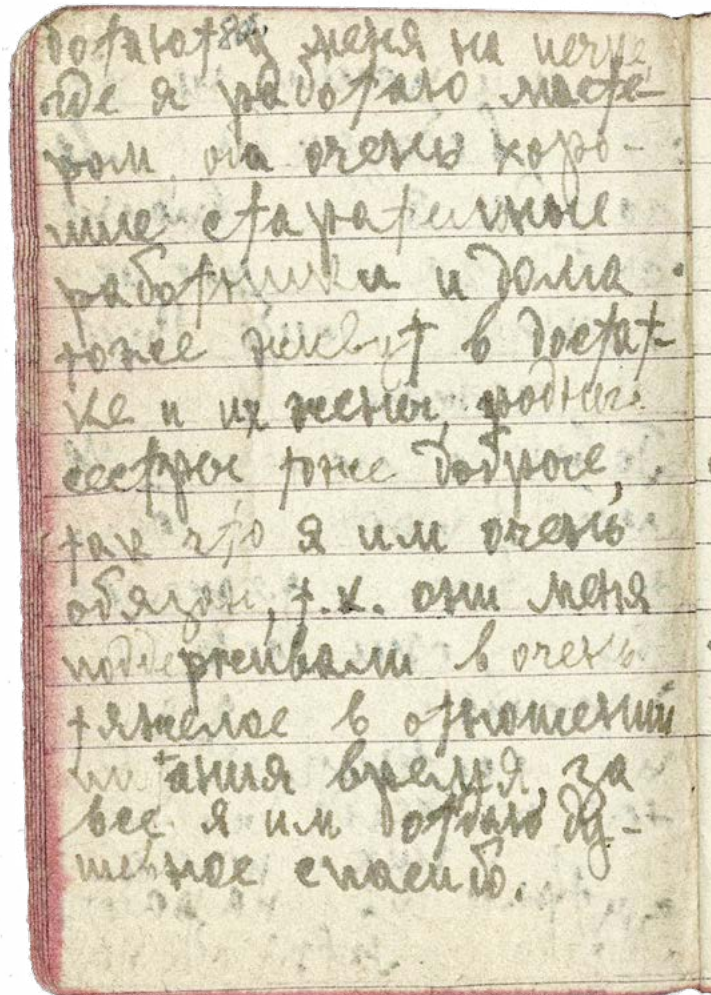 ботают у меня на печке,
где я работаю масте-
ром, оба очень хоро-
шие старательные
работники и дома
тоже живут в достат-
ке и их жены, родные
сестры тоже доброе,
так что я им очень
обязан, т.к. они меня
поддерживали в очень
тяжелое в отношении
питания время, за
все я им
шевное спасибо.